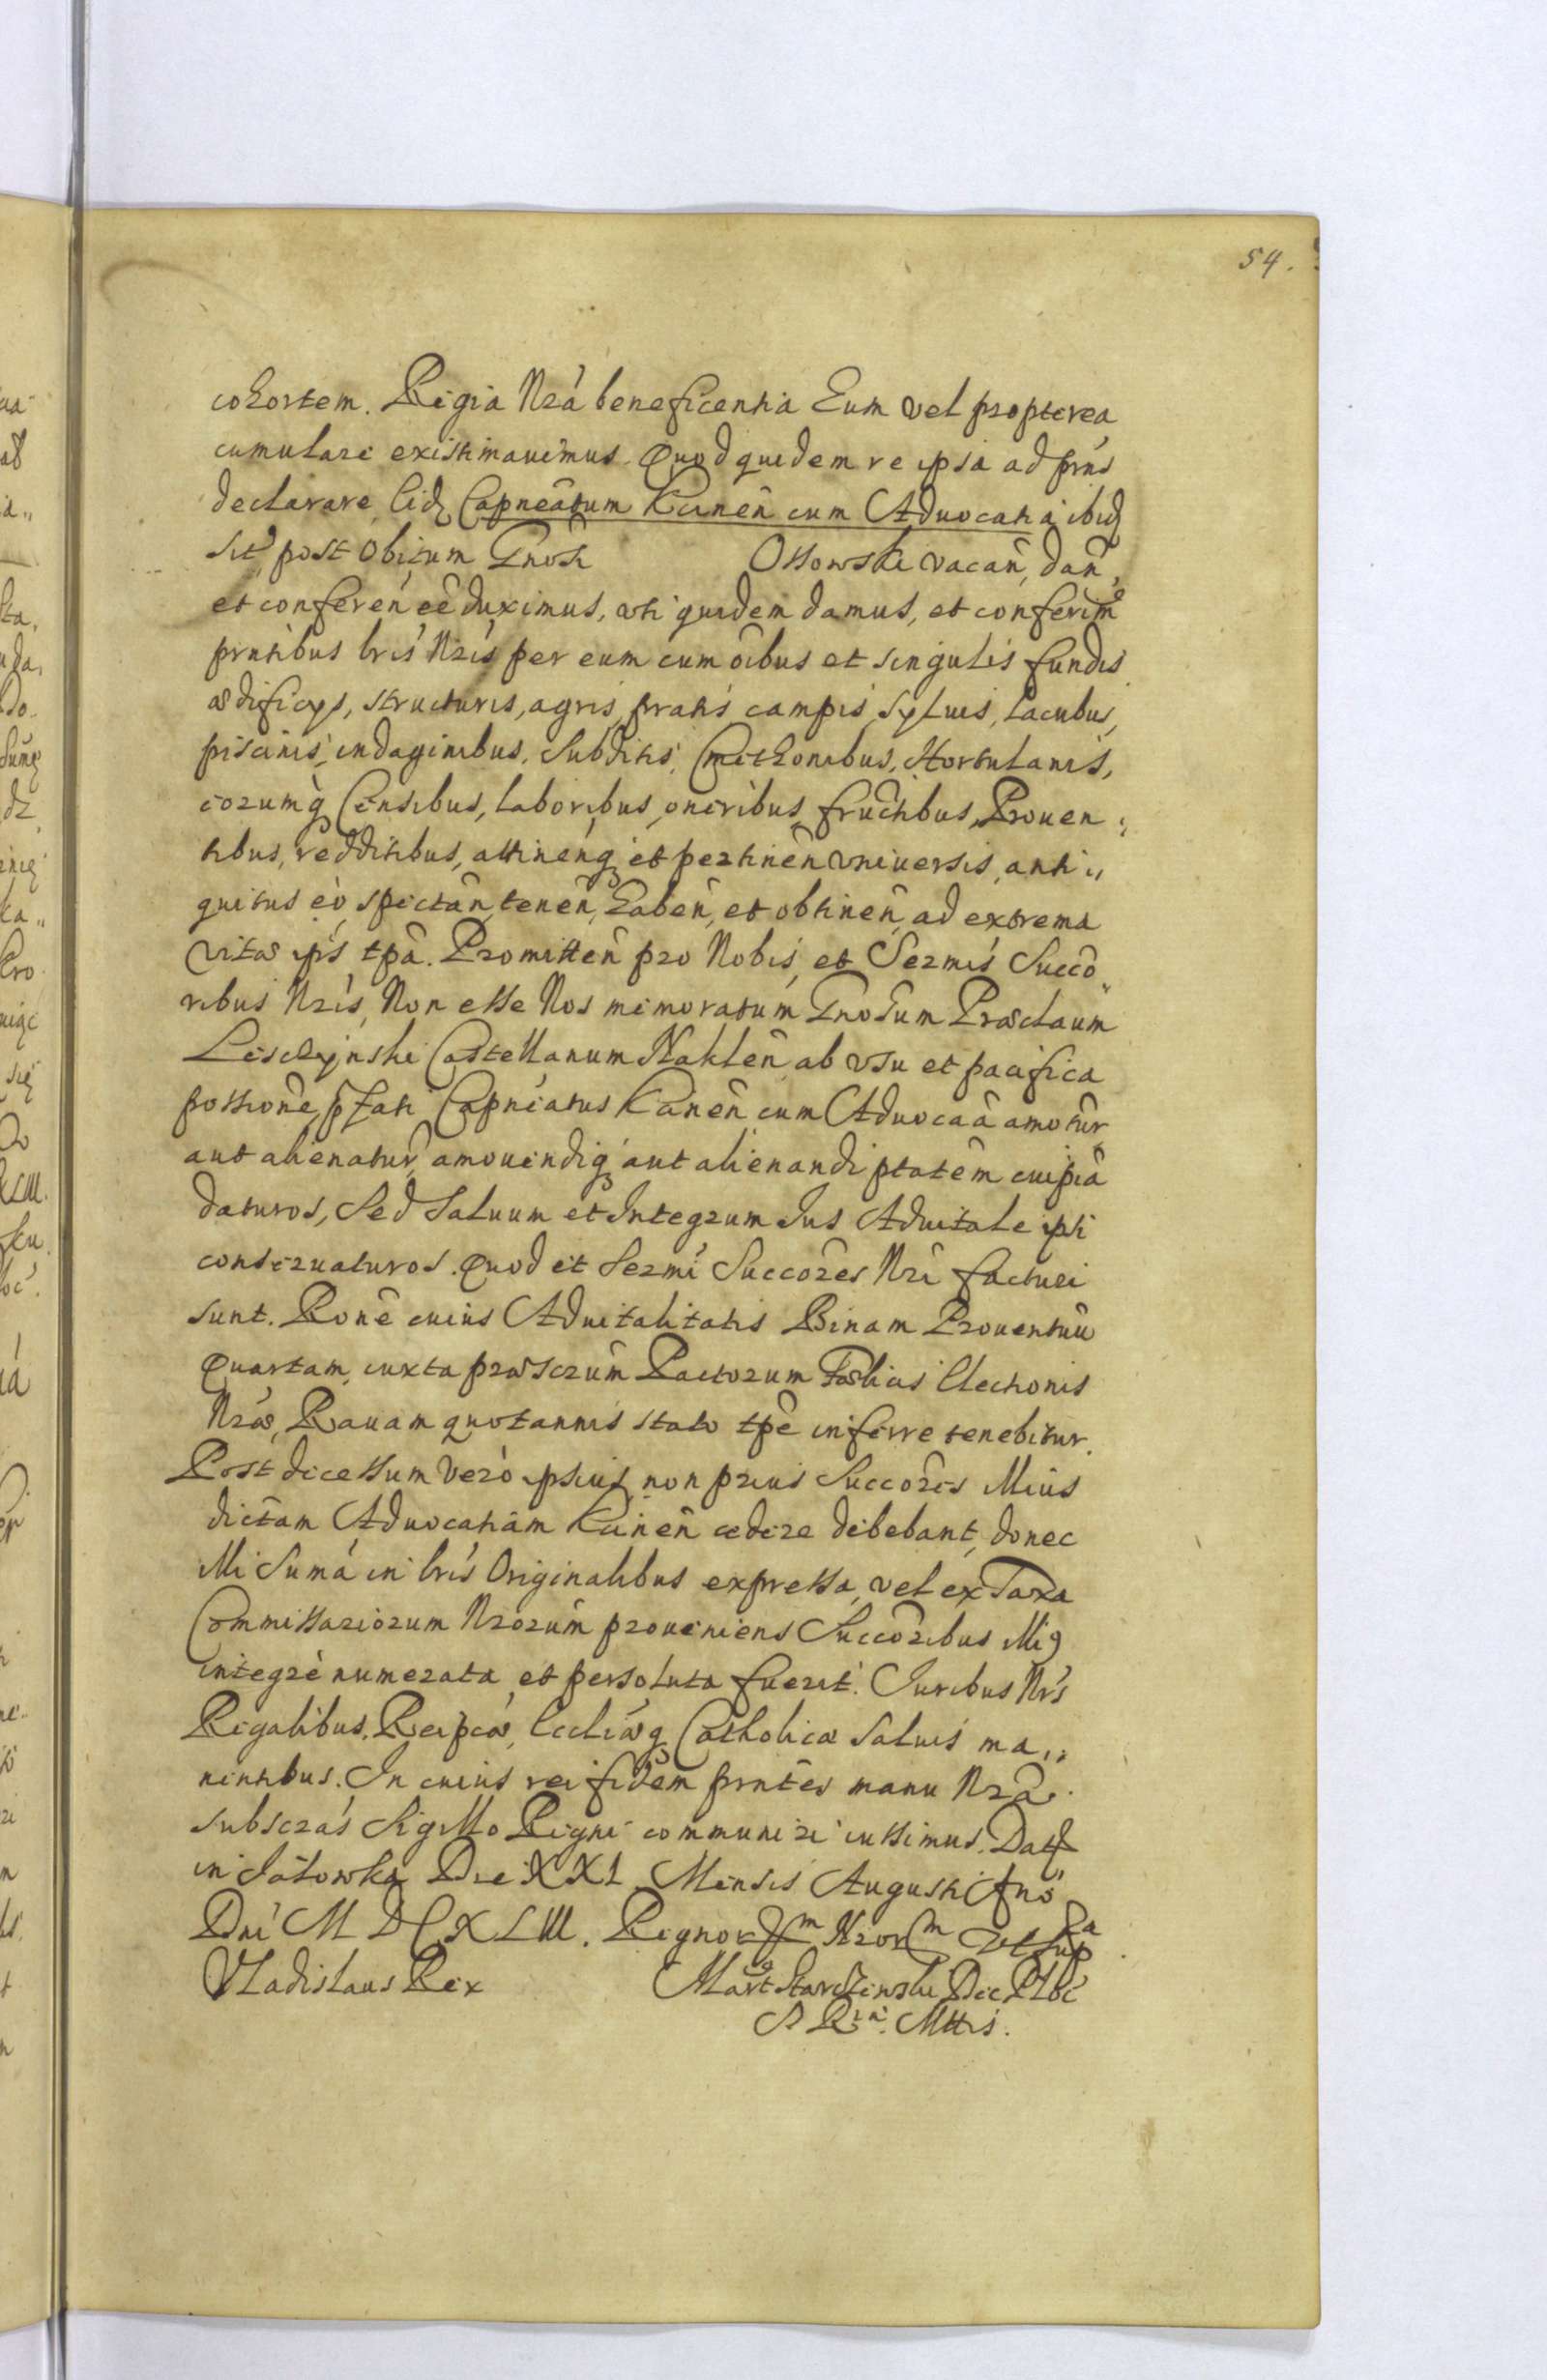 54.
cohortem. Regia Nrá beneficentia Eum vel propterea
cumulare existimauimus. Quod quidem re ipsa ad prns
declarare, Eidȩ Capneatum Kcinen̄ cum Aduocatia ibidȩ
sit post obitum Gnosi Ossowski vacan̄, dan̄,
et conferen̄ eē duximus, uti quidem damus, et conferimȝ
prntibus lrís Nrís per eum cum oībus et singulis fundis
ædificijs, structuris, agris, pratis campis syluis, lacubus,
piscinis, indaginibus, subditis, Cmethonibus, Hortulanis,
eorumq̨ Censibus, laboribus, oneribus, fructibus, Prouen
tibus, redditibus, attinen̄q̨ et pertinen̄ vniuersis, anti
quitus eò spectan̄, tenen̄, haben̄, et obtinen̄ ad extrema
vitæ ips tpā. Promitten̄ pro Nobis, et Sermís Succō
ribus Nrís, Non esse Nos memoratum Gnosum Præclaum
Lesczynski Castellanum Naklen̄ ab vsu et pacifica
possione, pfati Capneatus Kcinen̄ cum Aduocaā amotūr
aut alienatūr, amouendiq̨ aut alienandi ptatēm cuipiā
daturos, Sed saluum et Integrum Ius Aduitale ipsi
conseruaturos. Quod et Sermi Succōres Nrī facturi
sunt. Ronē cuius Aduitalitatis Binam Prouentuū
Quartam, iuxta præscrūm Pactorum Fælicis Electionis
Nræ, Rauam quotannis stato tpē inferre tenebitur.
Post decessum verò ipsius, non prius Succōres Illius
dictam Aduocatiam Kcinen̄ cedere debebant, donec
illi Suma in lrís Originalibus expressa, vel ex Taxa
Commissariorum Nrorūm proueniens Succōribus Illiȝ
integrè numerata, et persoluta fuerit. Iuribus Nrs
Regalibus, Reipcæ, Ecclíæq̨ Catholicæ saluis ma
nentibus. In cuius rei fidem prntēs manu Nrā
subscras Sigillo Regni communiri iussimus. Datȩ
in Die XXI Mensis Augusti Ano
Dni M DC XLIII. Regnorȩm Nrorm vt supra
Vladislaus Rex Mart Starczewski Dec Plocè
S Rea. Mttis.